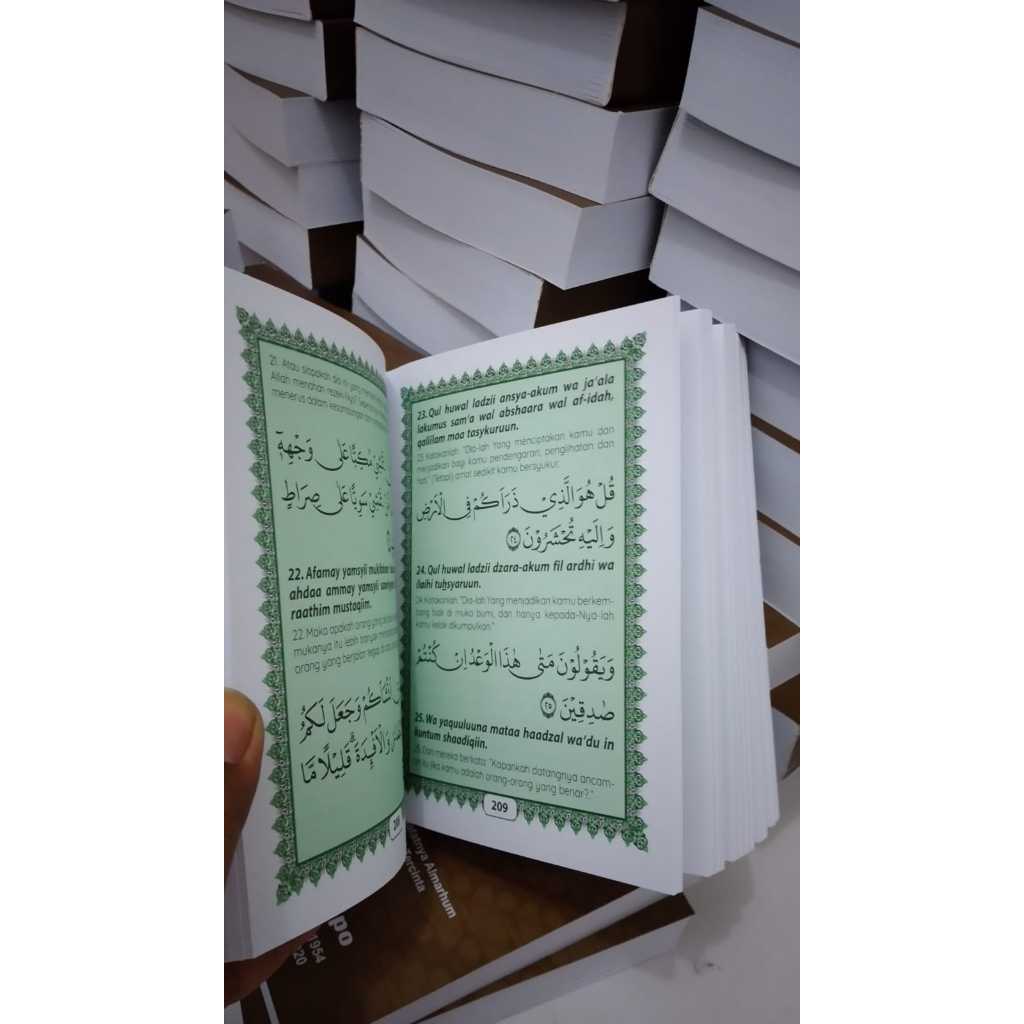 21. Atau siapakah dia ini yang
Allah menahan rezeki-Nya?
menerus dalam
مُكِبًّا عَلٰى وَجْهِهٖٓ
سَوِيًّا عَلٰى صِرَاطٍ
22. Afamay yamsyii mukibban
ahdaa ammay yamsyii
raathim mustaqiim.
22. Maka apakah orang yang
mukanya itu lebih banyak
orang yang berjalan tegap
اَنْشَاَكُمْ وَجَعَلَ لَكُمُ
وَالْاَفْـِٕدَةَ ۗ قَلِيْلًا مَّا
23. Qul huwal ladzii ansya-akum wa ja'ala
lakumus sam'a wal abshaara wal af-idah,
qaliilam maa tasykuruun.
23. Katakanlah: "Dia-lah Yang menciptakan kamu dan
menjadikan bagi kamu pendengaran, penglihatan dan
hati." (Tetapi) amat sedikit kamu bersyukur.
قُلْ هُوَ الَّذِيْ ذَرَاَكُمْ فِى الْاَرْضِ
وَاِلَيْهِ تُحْشَرُوْنَ ٢٤
24. Qul huwal ladzii dzara-akum fil ardhi wa
ilaihi tuḥsyaruun.
24. Katakanlah: "Dia-lah Yang menjadikan kamu berkem-
bang biak di muka bumi, dan hanya kepada-Nya-lah
kamu kelak dikumpulkan."
وَيَقُوْلُوْنَ مَتٰى هٰذَا الْوَعْدُ اِنْ كُنْتُمْ
صٰدِقِيْنَ ٢٥
25. Wa yaquuluuna mataa haadzal wa'du in
kuntum shaadiqiin.
25. Dan mereka berkata: "Kapankah datangnya ancam-
an itu jika kamu adalah orang-orang yang benar?."
209
Almarhum
Tercinta
1954